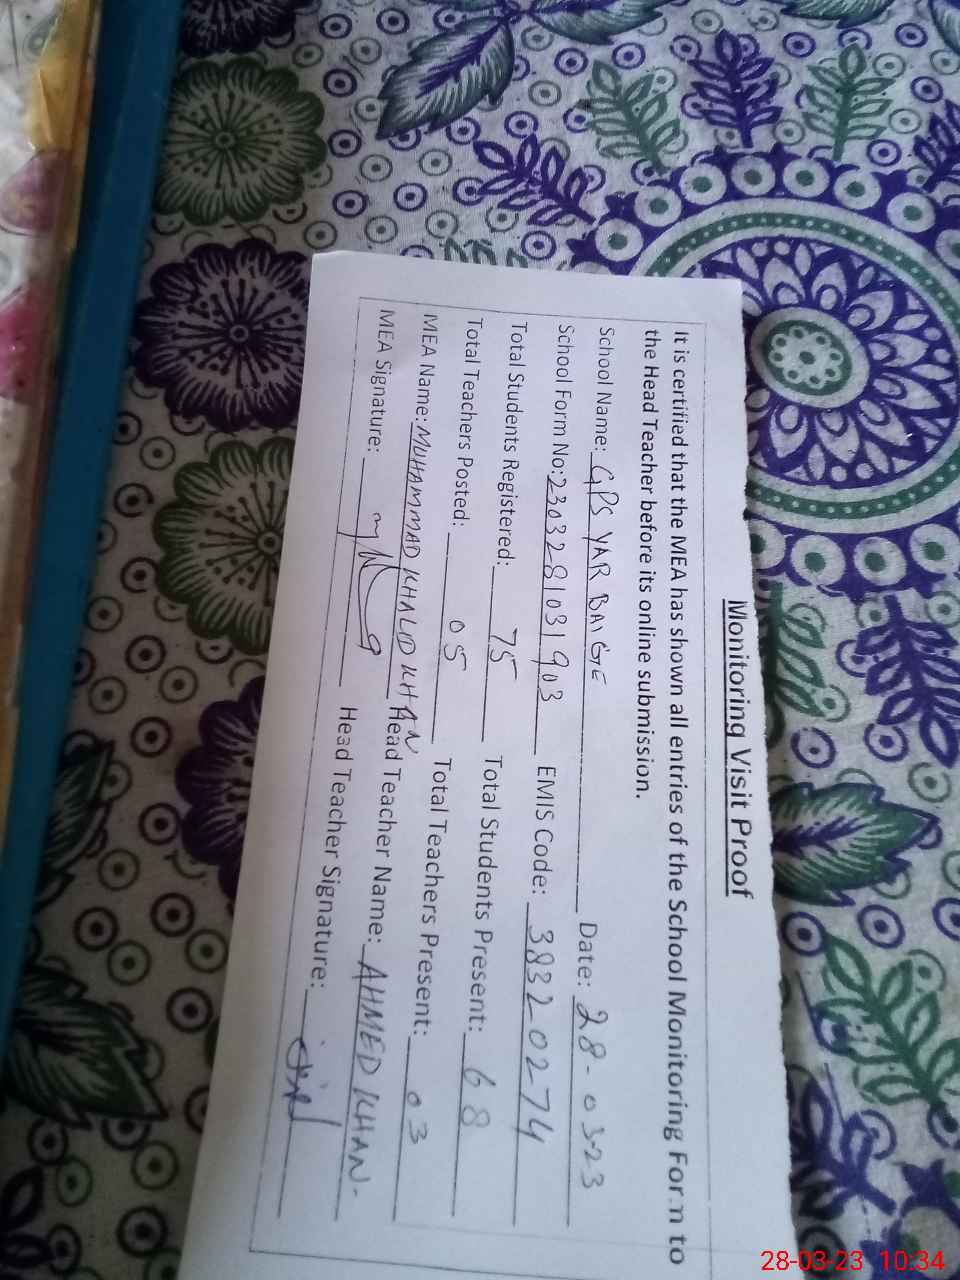 Monitoring Visit Proof
It is certified that the MEA has shown all entries of the School Monitoring Form to
the Head Teacher before its online submission.
School Name: GPS YAR BAIGE Date: 28-03-23
School Form No: 2303281031903 EMIS Code: 38320274
Total Students Registered: 75 Total Students Present: 68
Total Teachers Posted: 05 Total Teachers Present: 03
MEA Name: MUHAMMAD KHALID KHAN Head Teacher Name: AHMED KHAN-
MEA Signature: Head Teacher Signature:
28-03-23 10:34